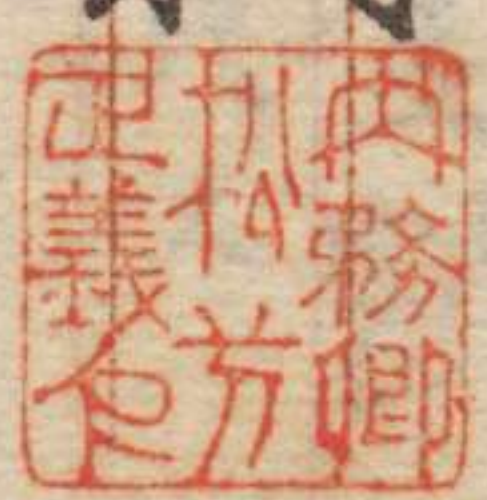 内務卿
松方
正義印